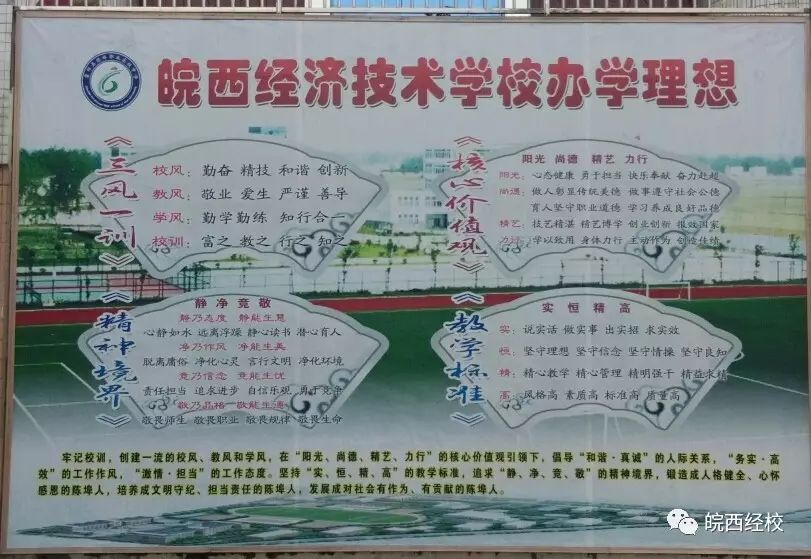 皖西经济技术学校办学理想
《三风一训》
校风：勤奋 精技 和谐 创新
教风：敬业 爱生 严谨 善导
学风：勤学勤练 知行合一
校训：富之 教之 行之 知之
《核心价值观》
阳光 尚德 精艺 力行
阳光：心态健康 勇于担当 快乐奉献 奋力赶超
尚德：做人彰显传统美德 做事遵守社会公德
育人坚守职业道德 学习养成良好品德
精艺：技艺精湛 精艺博学 创业创新 报效国家
力行：学以致用 身体力行 主动作为 创造佳绩
《精神境界》
静 净 竞 敬
静乃态度 静能生慧
心静如水 远离浮躁 静心读书 潜心育人
净乃作风 净能生美
脱离庸俗 净化心灵 言行文明 净化环境
竞乃信念 竞能生优
责任担当 追求进步 自信乐观 勇于竞争
敬乃品格 敬能生通
敬畏师生 敬畏职业 敬畏规律 敬畏生命
《教学标准》
实 恒 精 高
实：说实话 做实事 出实招 求实效
恒：坚守理想 坚守信念 坚守情操 坚守良知
精：精心教学 精心管理 精明强干 精益求精
高：风格高 素质高 标准高 质量高
牢记校训，创建一流的校风、教风和学风，在“阳光、尚德、精艺、力行”的核心价值观引领下，倡导“和谐·真诚”的人际关系，“务实·高
效”的工作作风，“激情·担当”的工作态度。坚持“实、恒、精、高”的教学标准，追求“静、净、竞、敬”的精神境界，锻造成人格健全、心怀
感恩的陈埠人，培养成文明守纪、担当责任的陈埠人，发展成对社会有作为、有贡献的陈埠人。
皖西经校